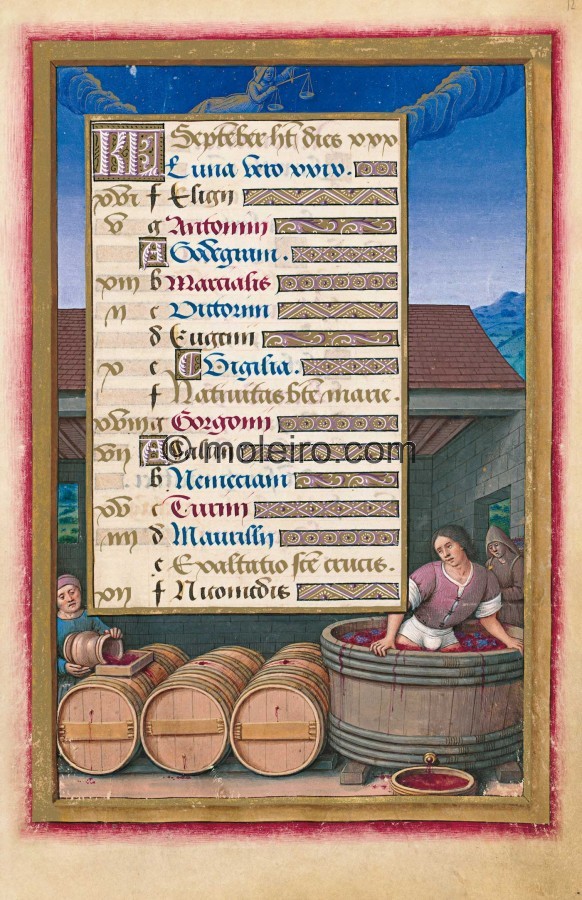 12
KL September ht dies xxx
Luna vero xxix.
xvi f Eligii
v g Antonini
A Godegrani.
xiii b Martialis
ii c Victorini
d Eugenii
x e Vigilia.
f Nativitas bte marie.
xviii g Gorgonii
vii A
© moleiro.com
b Nemeciani
xv c Turini
iiii d Maurilii
e Exaltatio sce crucis.
xii f Nicomedis